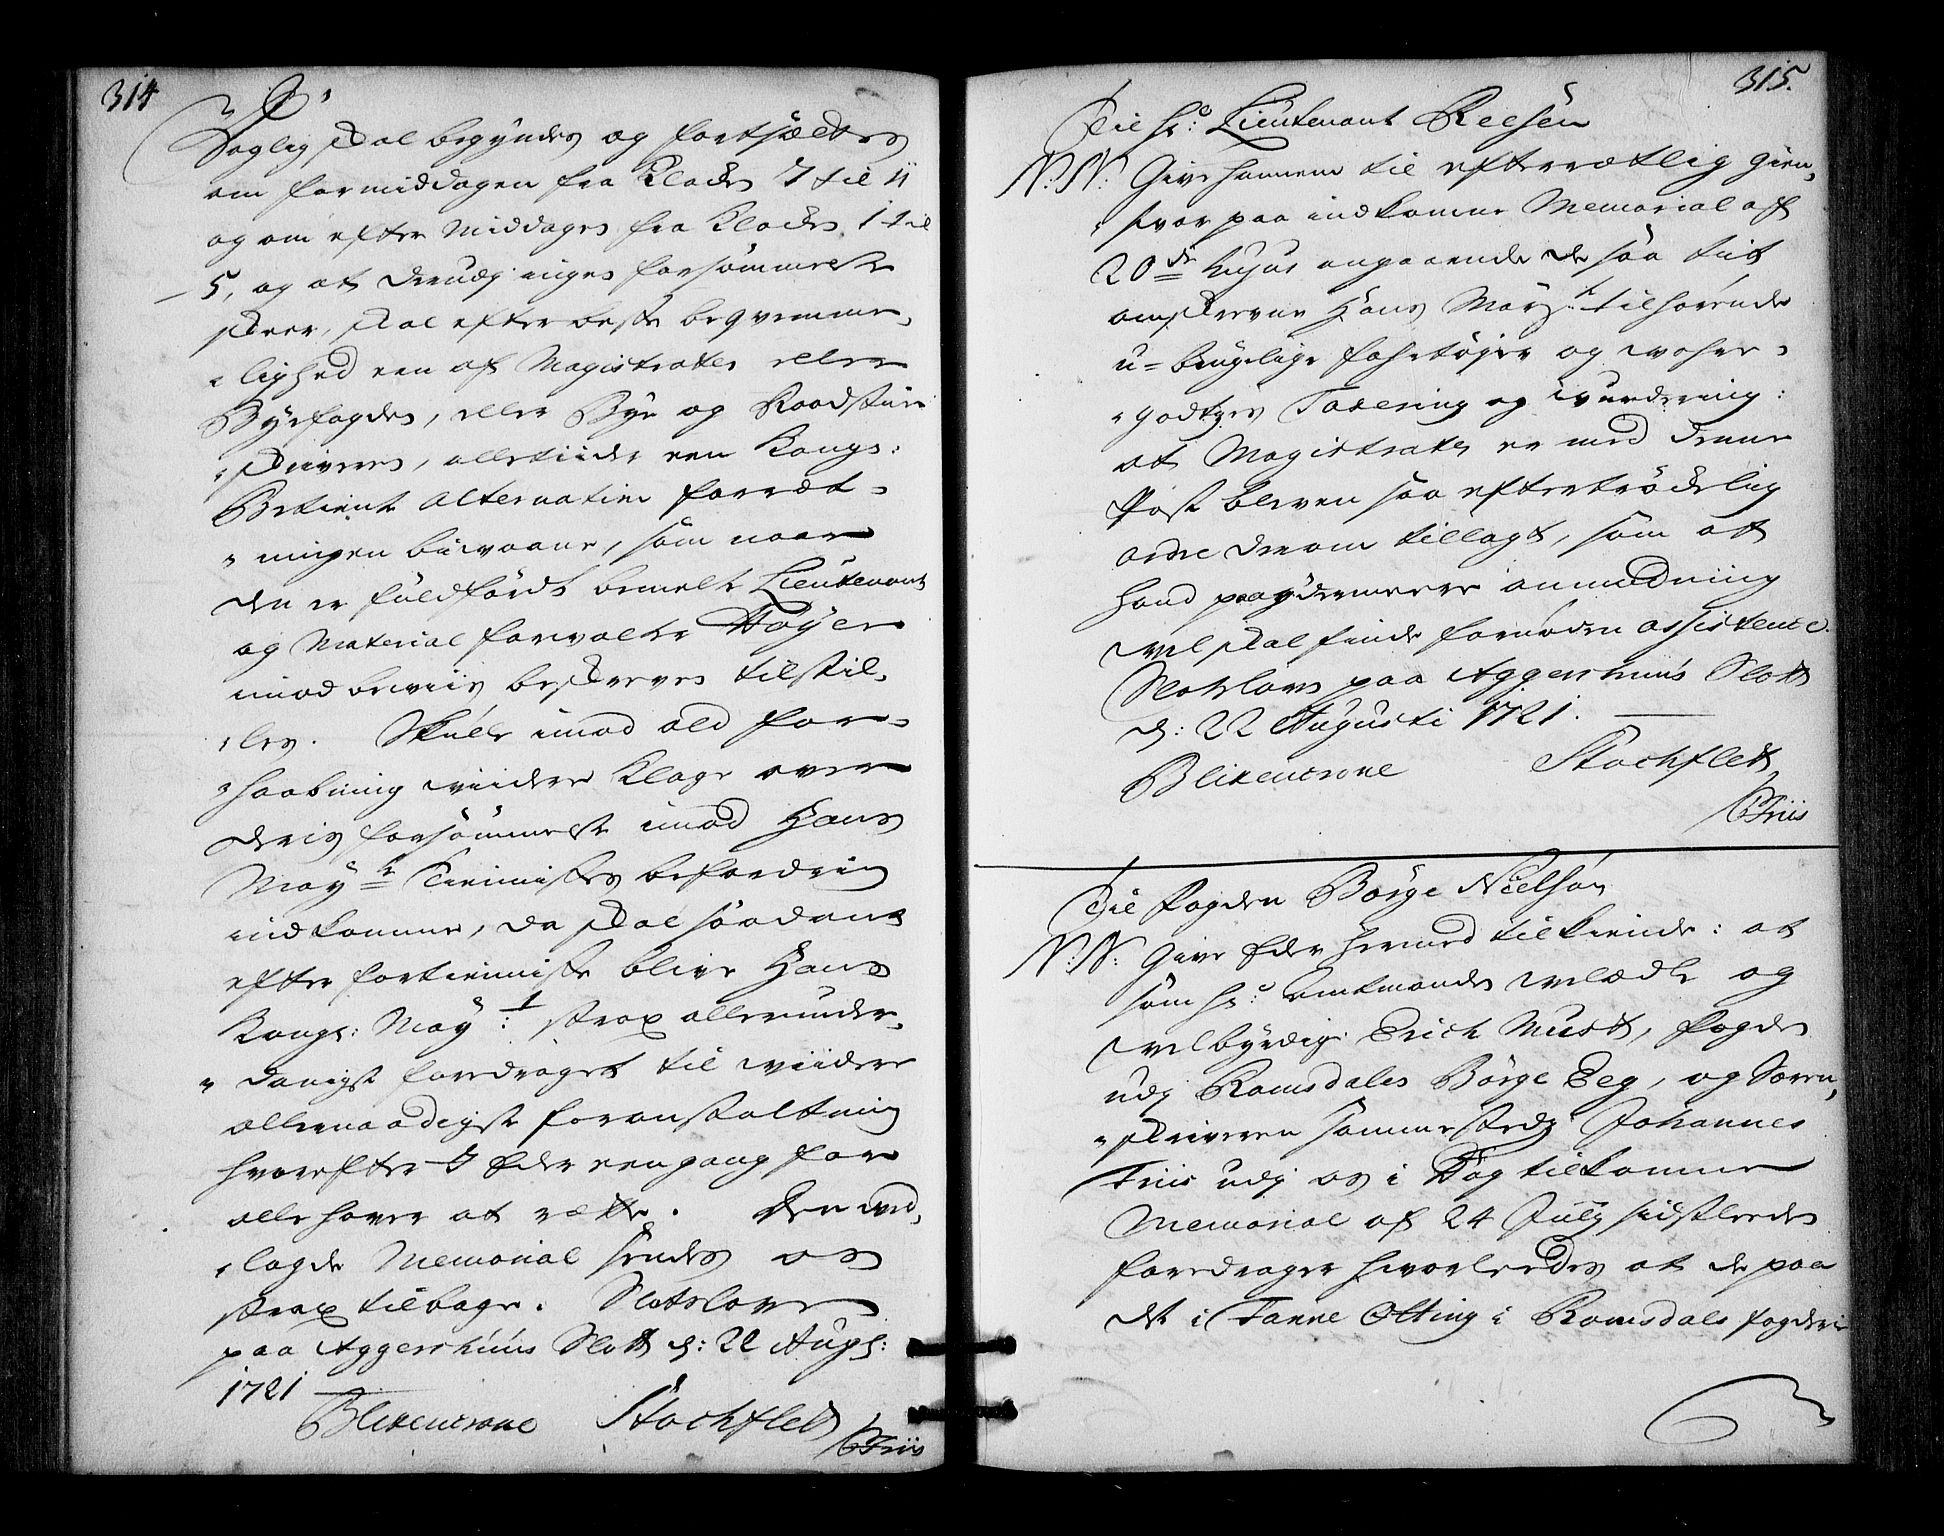 314
Daglig skal begyndes og fortsættes
om formiddagen fra Klocken 7 til 11
og om efter Middagen fra Klocken 1 til
5, og at derudj ingen forsømmelse
skeer, skal efter beste beqvemme,
„lighed een af Magistraten eller
Byefogden, eller Bye og Raadstue
„skriveren, alletiider een Kongs:
Betient alternative forræt-
„ningen biivaane, som naar
den er fuldført bemelte Lieutenant
og Material forvalter Høyer
imod beviis beskreven tilstil,
„les. Skulle imod ald for-
„haabning viidere Klage over
deris forsømmelse imod Hans
May:ts Tienistes befordring
indkomme, da skal saadant
efter fortieniste blive Hans
Kongl: May:t strax allerunder,
„danigst foredraget til viidere
allernaadigste foranstaltning
hvorefter I Eder eengang for
alle haver at rette. Den ved,
„lagde Memorial sendes os
strax tilbage. Slotsloven
paa Aggershuus Slott d: 22 Augs:
1721
Blixencrone Stochfleth
CFriis
315.
Til Hr: Lieutenant Reesen
N: N: Give hannem til efterretlig gien,
„svar paa indkomne Memorial af
20de hujus angaaende de saa tit
omskrevne Hans May:ts tilhørende
u-brugelige fahrtøyer og
godtzes Taxering og vurdering:
at Magistraten er med denne
Post bleven saa eftertrøckelig
ordre derom tillagt, som at
hand paa ydermeere anmodning
vel skal finde fornøden assistence.
Slotsloven paa Aggershuus Slott
d: 22 Augusti 1721.
Blixencrone Stochfleth
CFriis
Til Fogden Børge Nielsøn
N: N: Give Eder hermed tilkiende: at
som Hr: Amtmanden velædle og
velbyrdige Erich Must, Fogden
udj Romsdalen Børge Eeg, og Soren,
„skriveren sammesteds Johannes
Friis udj os i Dag tilkomne
Memorial af 24 July sidstleeden
foredrager hvorleedes at de paa
det i Tanne Otting i Romsdals fogderie